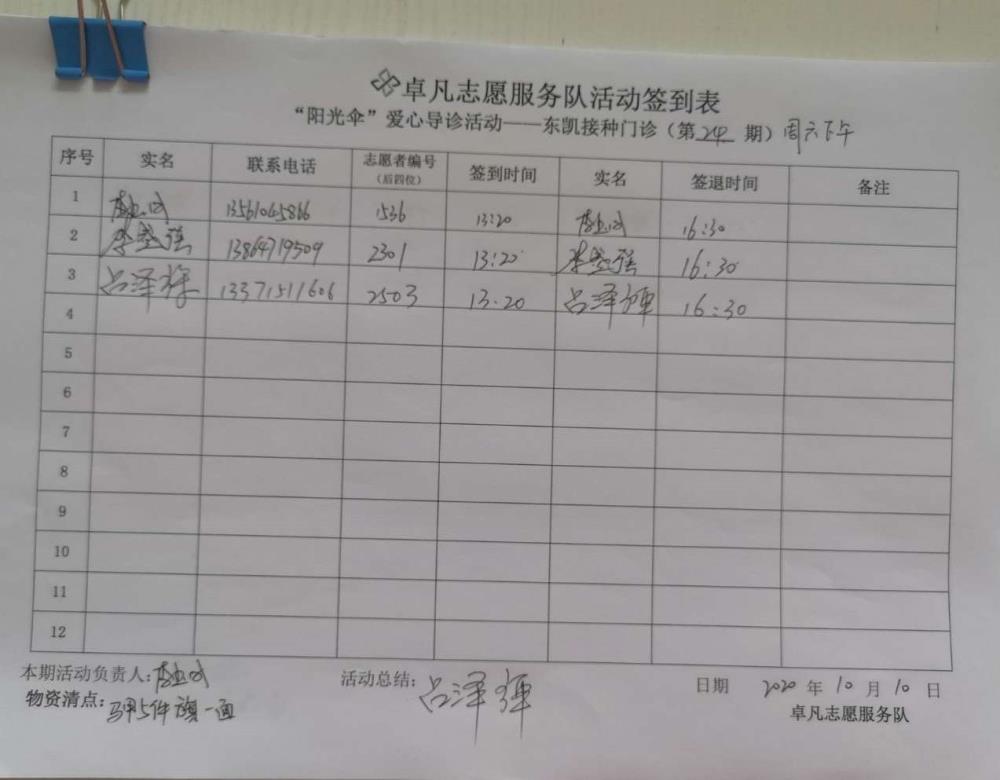 卓凡志愿服务队活动签到表
“阳光伞”爱心导诊活动——东凯接种门诊（第 24 期）周六下午
序号 实名 联系电话 志愿者编号（后四位） 签到时间 实名 签退时间 备注
1 13561065866 1536 13:20 16:30
2 13864719509 2301 13:20 16:30
3 吕泽 13371511606 2503 13.20 吕泽 16:30
4
5
6
7
8
9
10
11
12
本期活动负责人： 活动总结：吕泽 日期 2020 年 10 月 10 日
物资清点：马甲5件 旗一面 卓凡志愿服务队